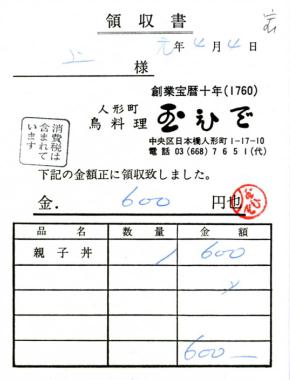 領収書
元年4月4日
上 様
創業宝暦十年(1760)
人形町
鳥料理 玉ひで
中央区日本橋人形町1-17-10
電話 03(668)7651(代)
消費税は
含まれて
います
下記の金額正に領収致しました。
金. 600 円也
品名 数量 金額
親子丼 1 600
600—